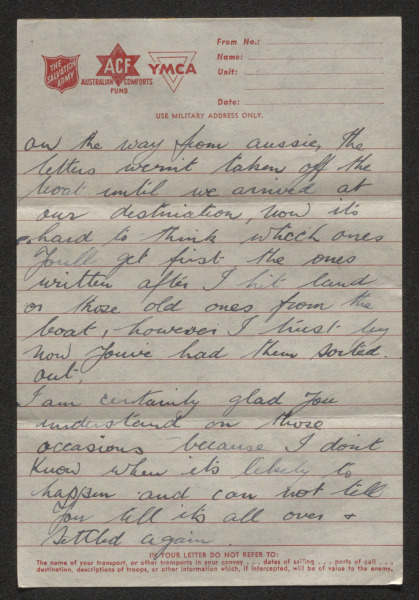 THE SALVATION ARMY
ACF
AUSTRALIAN COMFORTS FUND
YMCA
From No.:
Name:
Unit:
Date:
USE MILITARY ADDRESS ONLY.
on the way from aussie, the
letters wern't taken off the
boat until we arrived at
our destiniation, now its
hard to think whicch ones
You'll get first the ones
written after I hit land
or those old ones from the
boat, however I trust by
now You've had them sorted
out,
I am certainly glad You
understand on those
occasions because I don't
know when its likely to
happen and can not tell
You till its all over &
settled again.
IN YOUR LETTER DO NOT REFER TO:
The name of your transport, or other transports in your convoy . . . dates of sailing . . . ports of call . . .
destination, descriptions of troops, or other information which, if intercepted, will be of value to the enemy.